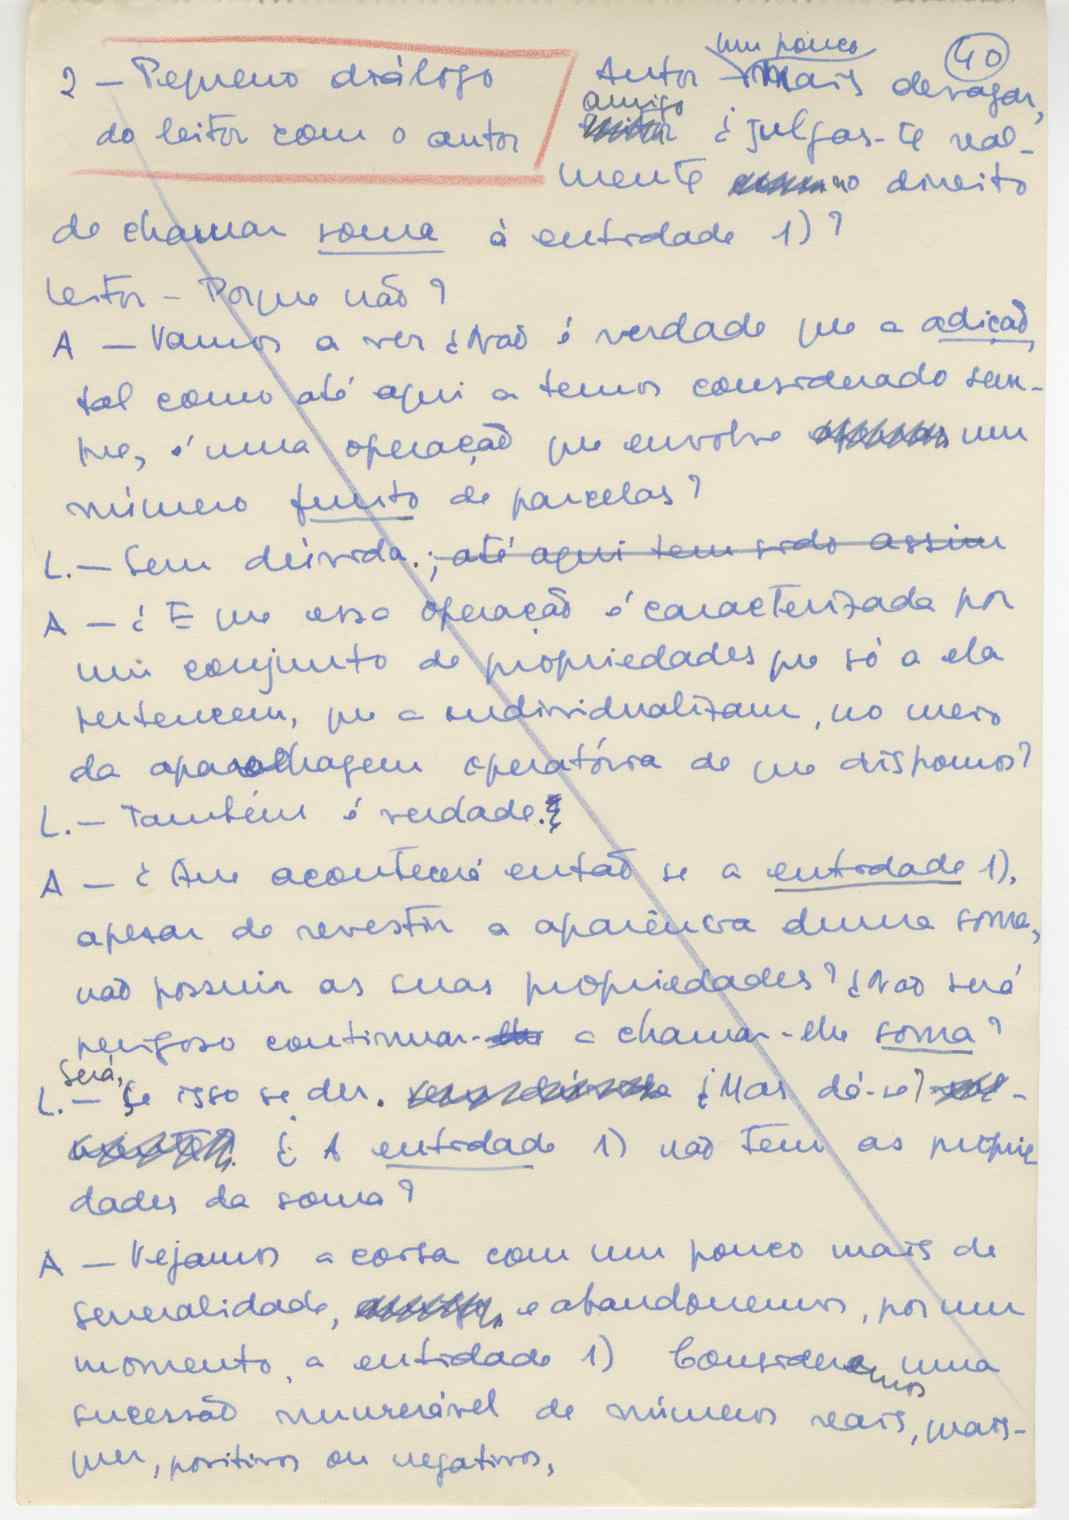 40
2 – Pequeno diálogo
do leitor com o autor
Autor – um pouco mais devagar,
amigo ¿ julgas-te real-
mente no direito
de chamar soma à entidade 1)?
Leitor – Porque não?
A – Vamos a ver ¿Não é verdade que a adição,
tal como até aqui a temos considerado sem-
pre, é uma operação que envolve um
número finito de parcelas?
L. – Sem dúvida.; até aqui tem sido assim
A – ¿ E que essa operação é caracterizada por
um conjunto de propriedades que só a ela
pertencem, que a individualizam, no meio
da aparelhagem operatória de que dispomos?
L. – Também é verdade.
A – ¿ Que acontecerá então se a entidade 1),
apesar de revestir a aparência duma soma,
não possuir as suas propriedades? ¿Não será
perigoso continuar- a chamar-lhe soma?
L. – Será, se isso se der. ¿Mas dá-se?
¿ A entidade 1) não tem as proprie
dades da soma?
A – Vejamos a coisa com um pouco mais de
generalidade, e abandonemos, por um
momento, a entidade 1) Consideremos uma
sucessão numerável de números reais, quais-
quer, positivos ou negativos,